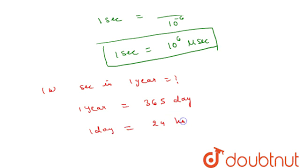 1 sec = 1/10⁻⁶
1 sec = 10⁶ μsec
(b) sec in 1 year = ?
1 year = 365 day
1 day = 24 h
doubtnut